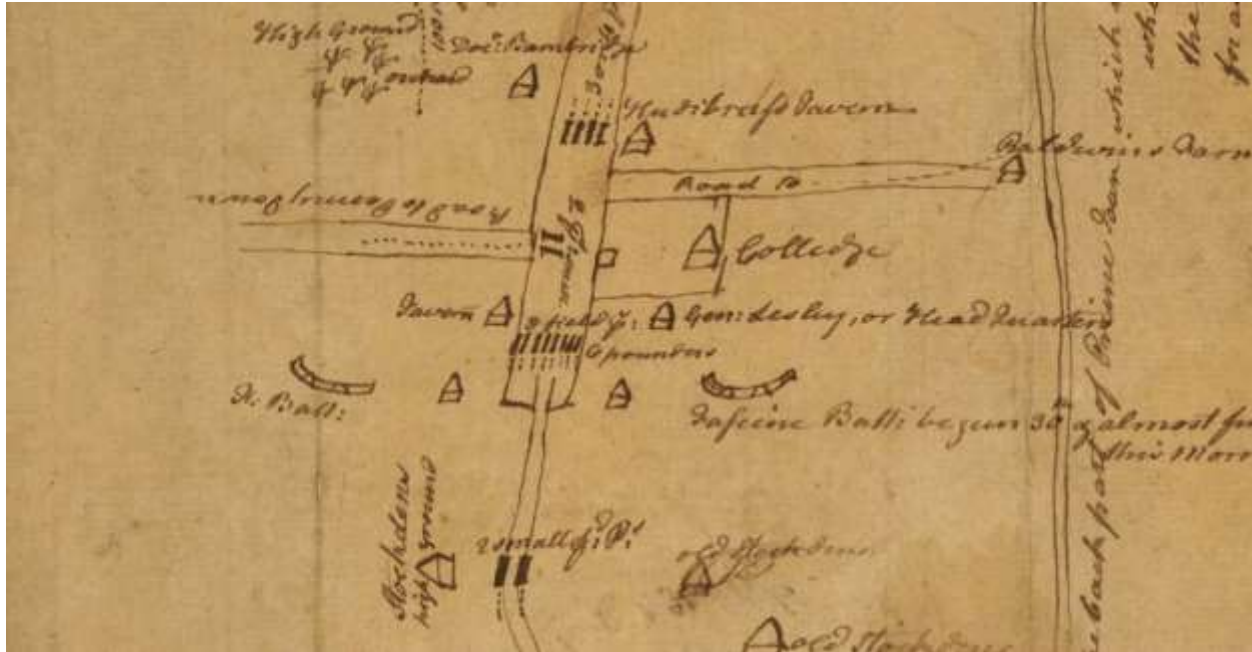 High Ground
Docr. Bambridge
Hudibrass Tavern
Baldwins Farm
Road to
Road to Penny Town
Colledge
Tavern
8 field ps:
Gen: Lesley, or Head Quarters
6 pounders
F: Batt:
Fascine Batt: begun 30th & almost
this Morn
Stockdens
high ground
2 small fd: Ps
old Stockdens
old Stockdens
back part of Prince Town which
the
for a